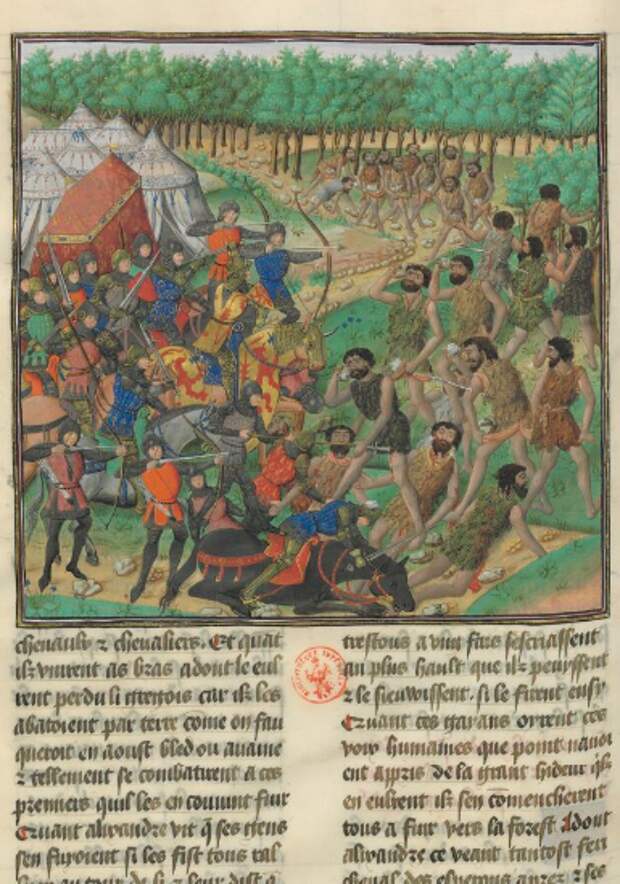 chevaulx ⁊ chevaliers. Et quāt
ilz vinrent as bras adont leeus
rent perdu li gregois car ilz les
abatoient par terre come on fau
queroit en aoust bled ou avaine
⁊ tellement se combatirent a ces
premiers quil les en couvint fuir
Quant alixandre vit q̄ ses gens
sen fuioient si les fist tous ral
trestous a vng fais sescriassent
au plus hault que ilz peussent
⁊ le sieuwissent. si le firent ensy
Quant ces garans oirent ces
voix humaines que point navoi
ent appris de la grant hideur qͥlz
en eulrent ilz sen comencherent
tous a fuir vers la forest Adont
alixandre ce veant tantost feri
cheval des